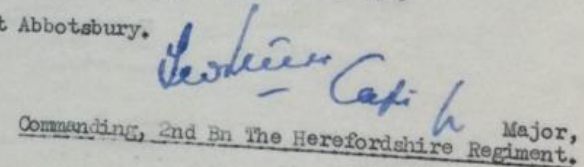 t Abbotsbury.
Major,
Commanding, 2nd Bn The Herefordshire Regiment.